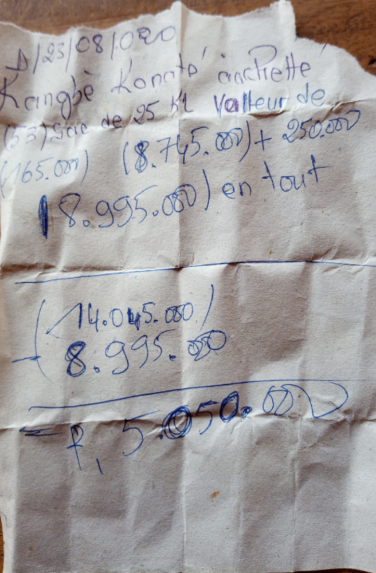 D/23/08/020
Kangbè Konaté anchette
(53) Sac de 25 kg Valleur de
(165.000) (8.745.000) + 250.000
(8.995.000) en tout
(14.045.000)
- (8.995.000
= f, 5.050.000